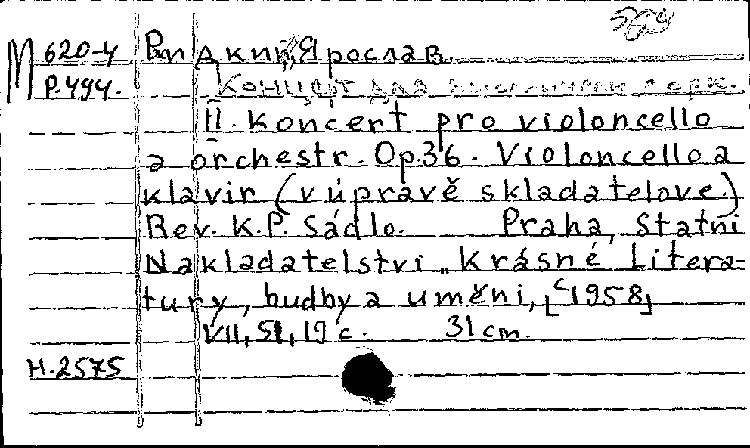 М 620-4 Ридкий, Ярослав.
Р.494. Концерт для виолончели с орк.
II. koncert pro violoncello
a orchestr. Op.36. Violoncello a
klavir (v úpravě skladatelove.)
Rev. K.P. Sádlo. Praha, Statni
Nakladatelstvi „Krásné Litera-
tury, hudby a uměni, [c1958]
VII, 51, 19 c. 31 cm.
Н.2575